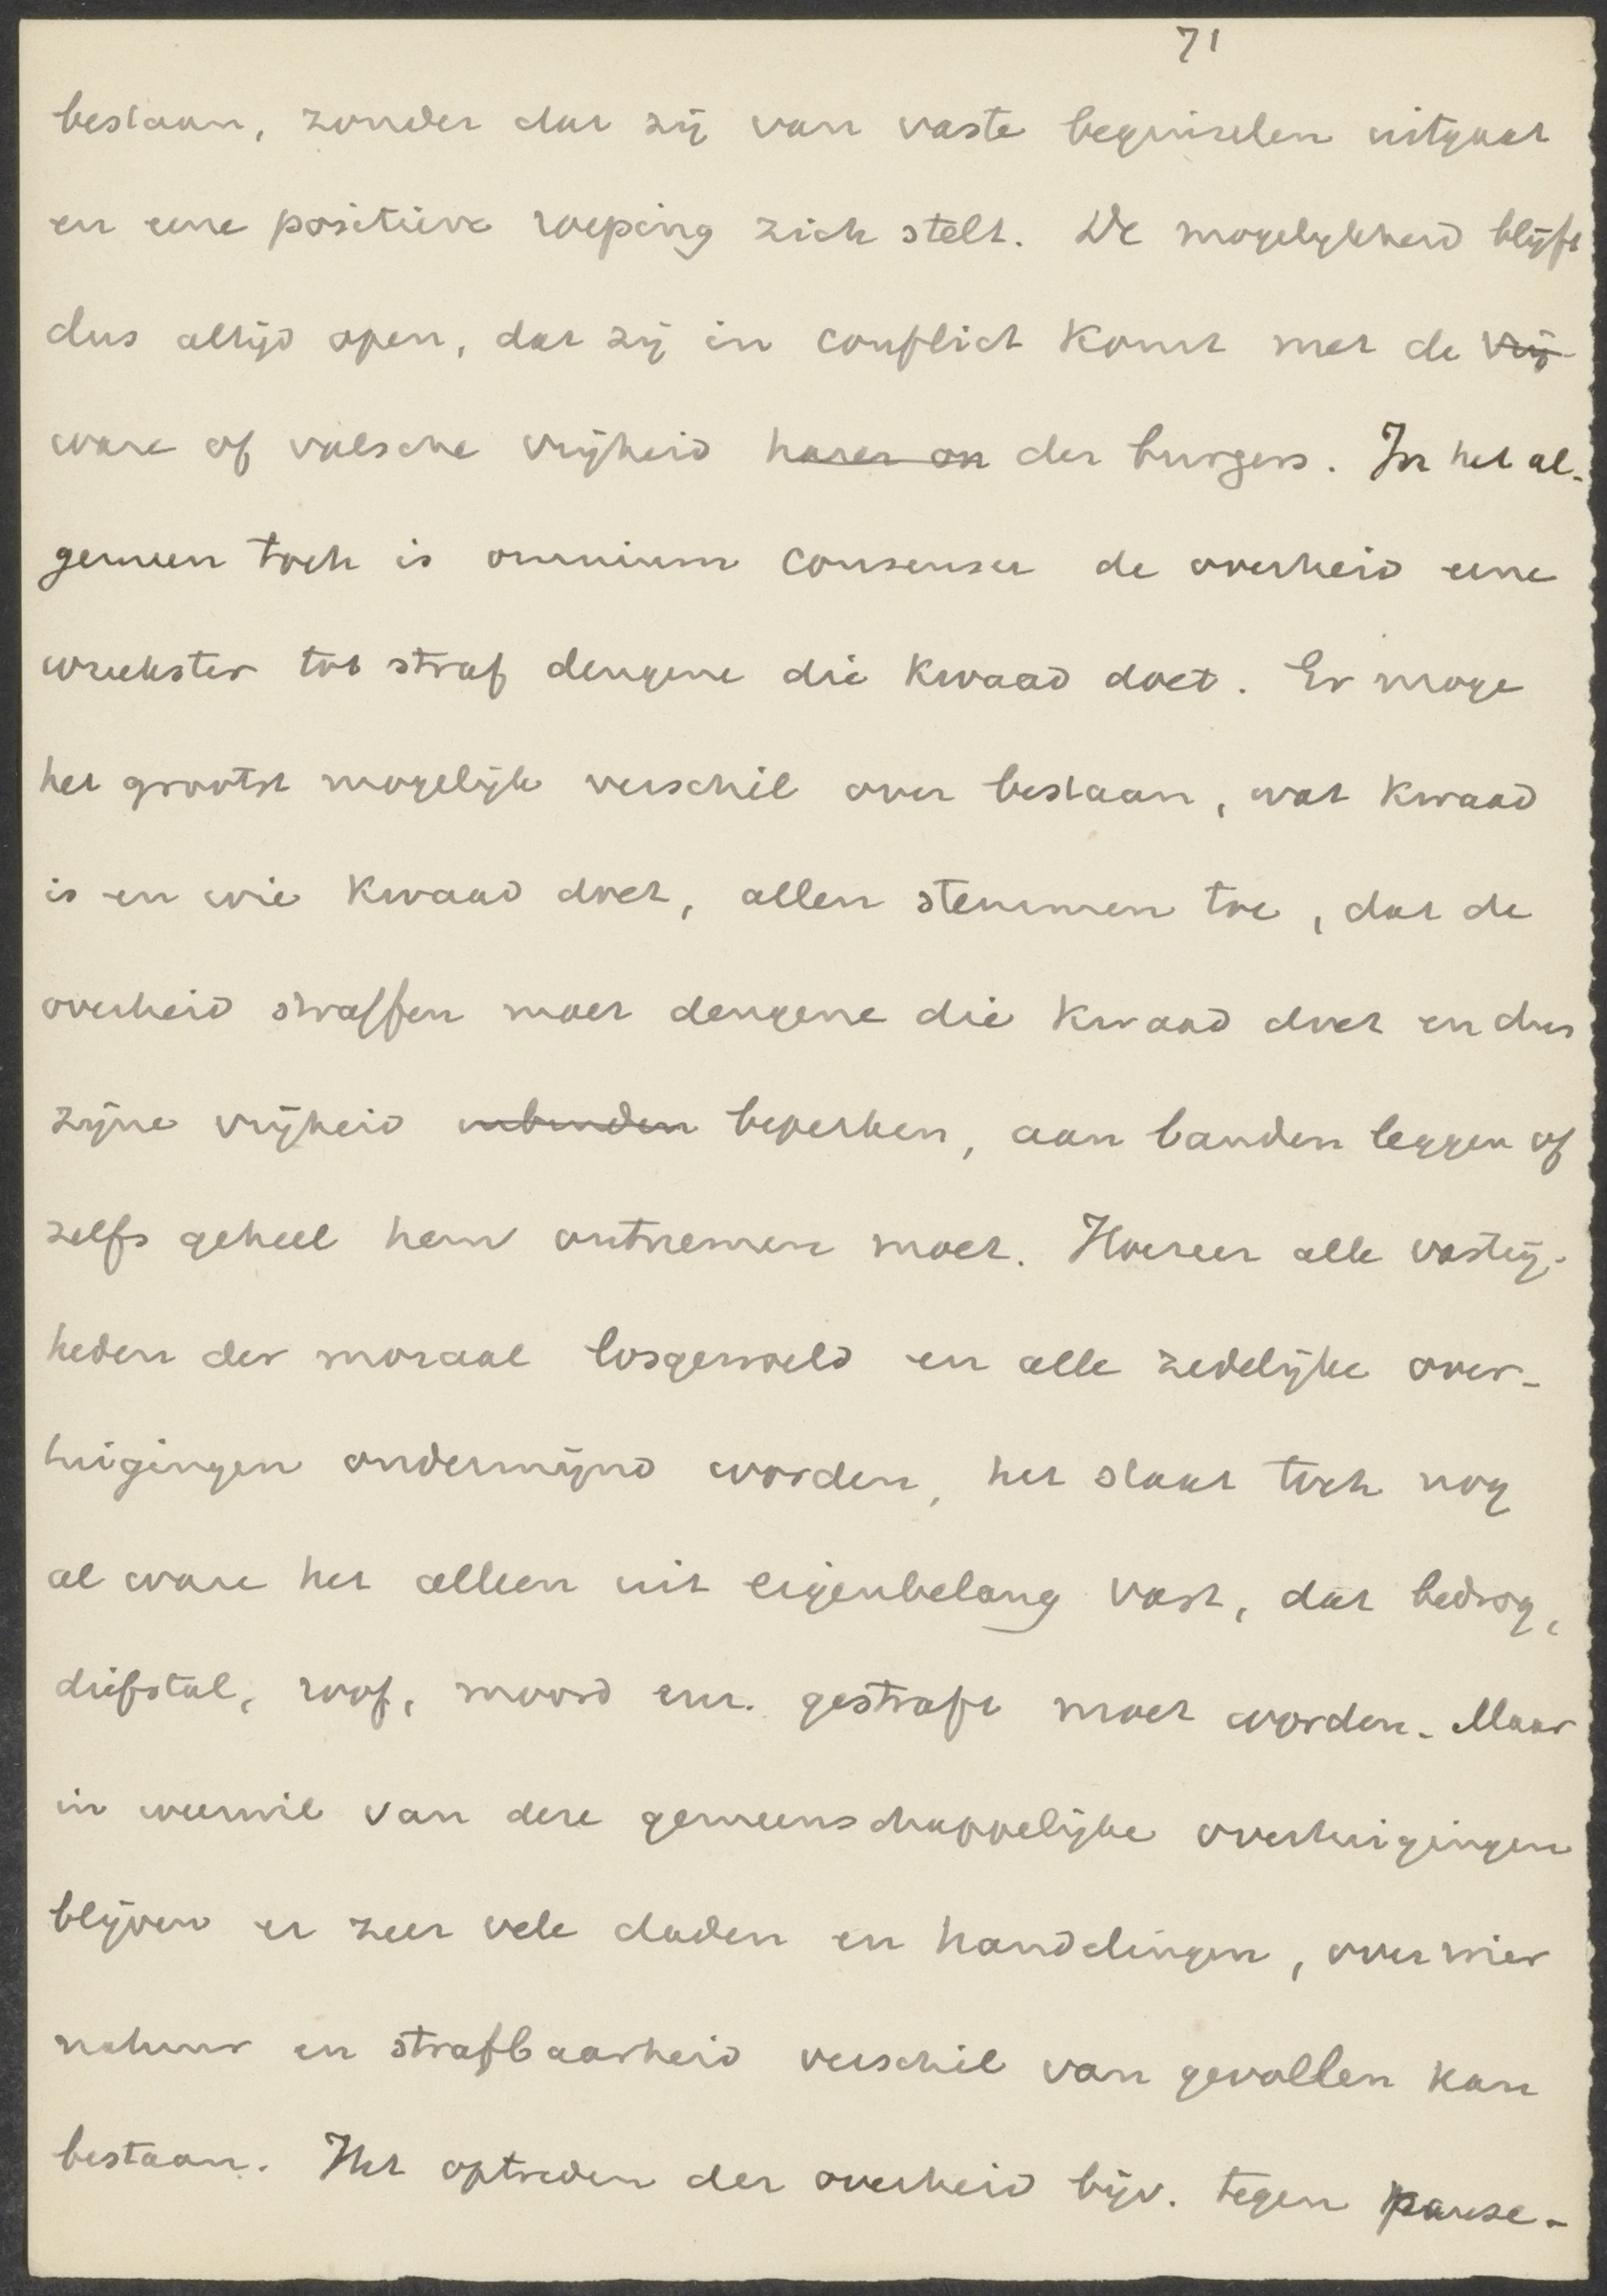 71
bestaan, zonder dat zij van vaste beginselen uitgaat
en eene positieve roeping zich stelt. De mogelijkheid blijft
dus altijd open, dat zij in conflict komt met de vrij
ware of valsche vrijheid harer on der burgers. In het al-
gemeen toch is omnium consensu de overheid eene
wreekster tot straf dengene die kwaad doet. Er moge
het grootst mogelijk verschil over bestaan, wat kwaad
is en wie kwaad doet, allen stemmen toe, dat de
overheid straffen moet dengene die kwaad doet en dus
zijne vrijheid beperken, aan banden leggen of
zelfs geheel hem ontnemen moet. Hoezeer alle vastig-
heden der moraal losgewoeld en alle zedelijke over-
tuigingen ondermijnd worden, het staat toch nog
al ware het alleen uit eigenbelang vast, dat bedrog,
diefstal, roof, moord enz. gestraft moet worden. Maar
in weerwil van deze gemeenschappelijke overtuigingen
blijven er zeer vele daden en handelingen, over wier
natuur en strafbaarheid verschil van gevoelen kan
bestaan. Het optreden der overheid bijv. tegen